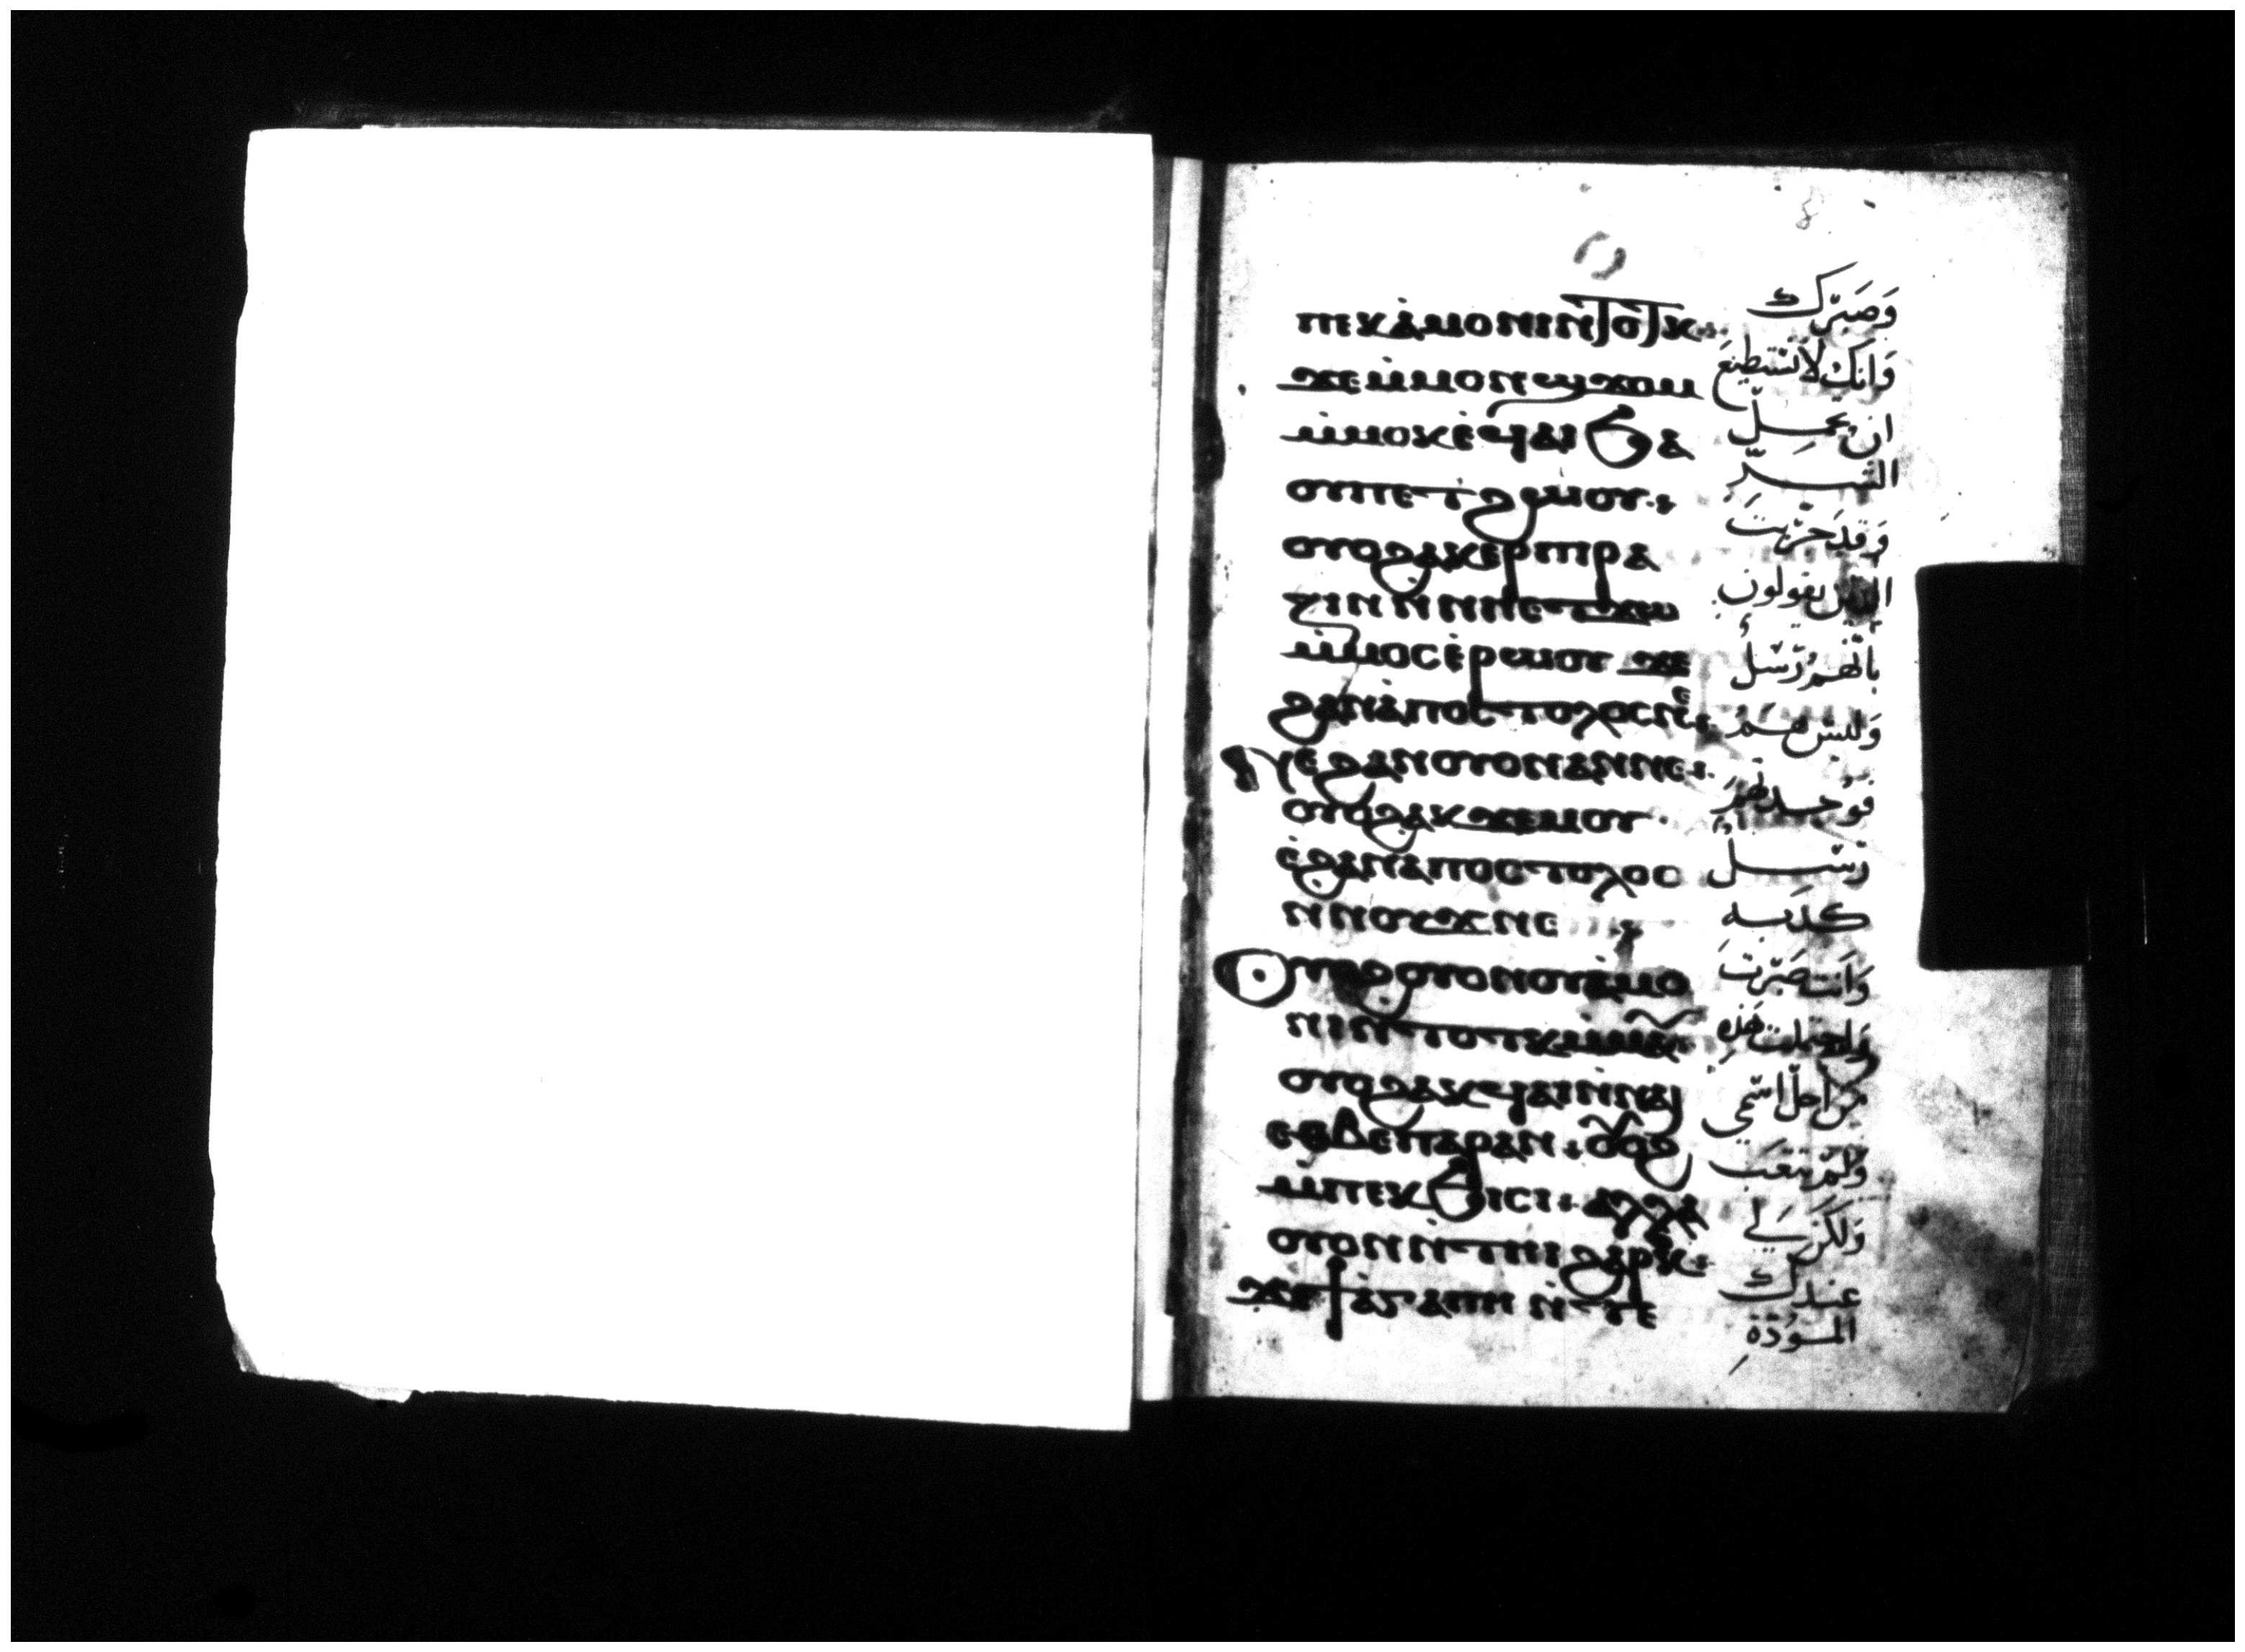 ⲡⲉⲕⲁ̀ⲙⲟⲛⲓⲛ̀ⲧⲟⲧⲕ
ϫⲉⲙ̀ⲙⲟⲛϣϫⲟⲙ
ⲙ̀ⲙⲟⲕⲉ̀ϥⲁⲓϧⲁ
ⲟⲩⲡⲉⲧϩⲱⲟⲩ
ⲟⲩⲟϩⲁⲕⲉⲣⲡⲓⲣⲁ
ⲍⲓⲛⲛⲛⲏⲉⲧϫⲱ
ⲙ̀ⲙⲟⲥⲉ̀ⲣⲱⲟⲩϫⲉ
ϩⲁⲛⲁ̀ⲡⲟⲥⲧⲟⲗⲟⲥⲛⲉ
ⲟⲩⲟϩⲁⲕϫⲉⲙⲟⲩ
ⲉ̀ϩⲁⲛⲁⲡⲟⲥⲧⲟⲗⲟⲥ
ⲛⲛⲟⲩϫⲛⲉ
ⲟⲩⲟϩⲟⲩⲟⲛⲟⲩⲁⲙⲟ
ⲛⲓⲛ̀ⲧⲟⲧⲕⲙ̀ⲙⲁⲩ
ⲟⲩⲟϩⲁⲕϥⲁⲓⲛ̀ⲛⲁⲓ
ⲉⲑⲃⲉⲡⲁⲣⲁⲛ ⲟⲩⲟϩ
ⲙⲡⲉⲕϧⲓⲥⲓ ⲁⲗⲗⲁ
ⲟⲩⲟⲛⲛ̀ⲧⲏⲓϩⲁⲣⲟⲕ
ϫⲉϯⲁ̀ⲅⲁⲡⲏⲛ̀ⲧⲉ
وَصَبْرَك
وَانك لا تستطيع
ان تحمل
الشر
وَقد جرّبت
الذين يقولون
بانهم رسل
وَليس هم
فوجدتهم
رسل
كذبه
وَانت صَبرت
واحتملت هذه
من اجل اسمي
وَلم تتعب
وَلكن لي
عندك
المودة